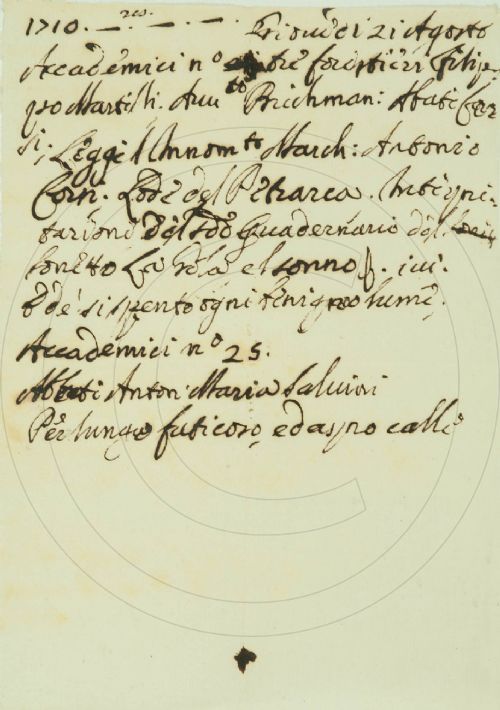 1710. Giovedì 21 Agosto
Accademici nº tre forestieri Filip-
po Martelli. Avv.to Brichman: Abati Cor
si; Leggi l'Innom.to March: Antonio
Corsi. Lode del Petrarca. Interpri-
tazioni del 2do Quadernario del
sonetto La gola el sonno. ivi.
E de sì spento ogni benigno lume.
Accademici nº 25.
Abati Anton Maria Salvini
Per lungo faticoso, ed aspro calle